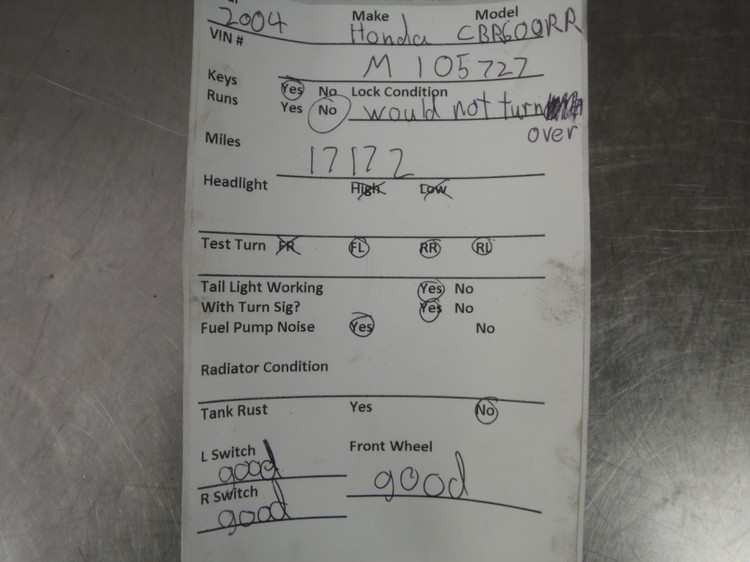 2004 Make Honda Model CBR600RR
VIN # M 105727
Keys Yes No Lock Condition
Runs Yes No would not turn
over
Miles 17172
Headlight High Low
Test Turn FR FL RR RL
Tail Light Working Yes No
With Turn Sig? Yes No
Fuel Pump Noise Yes No
Radiator Condition
Tank Rust Yes No
L Switch good Front Wheel good
R Switch good